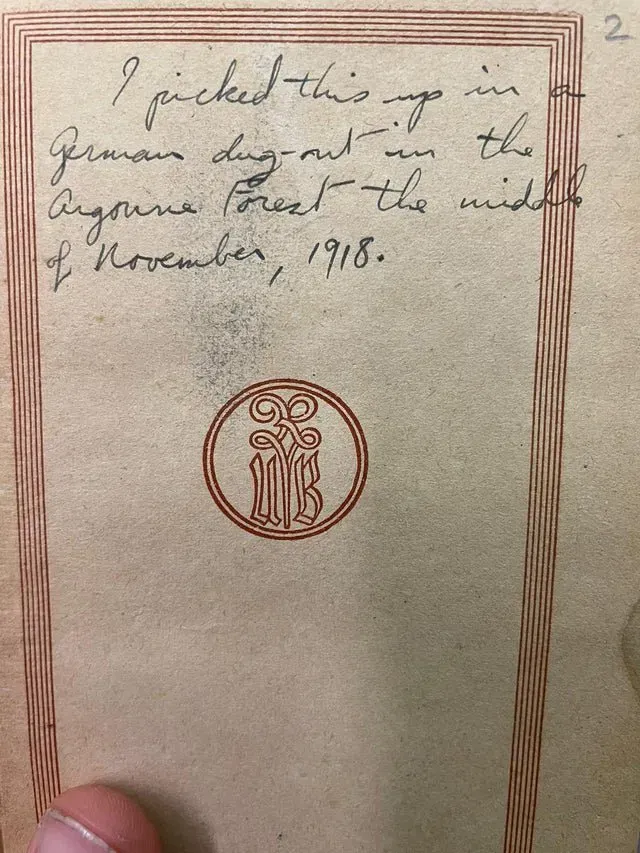 2
I picked this up in a
German dug-out in the
Argonne Forest the middle
of November, 1918.
R
UB